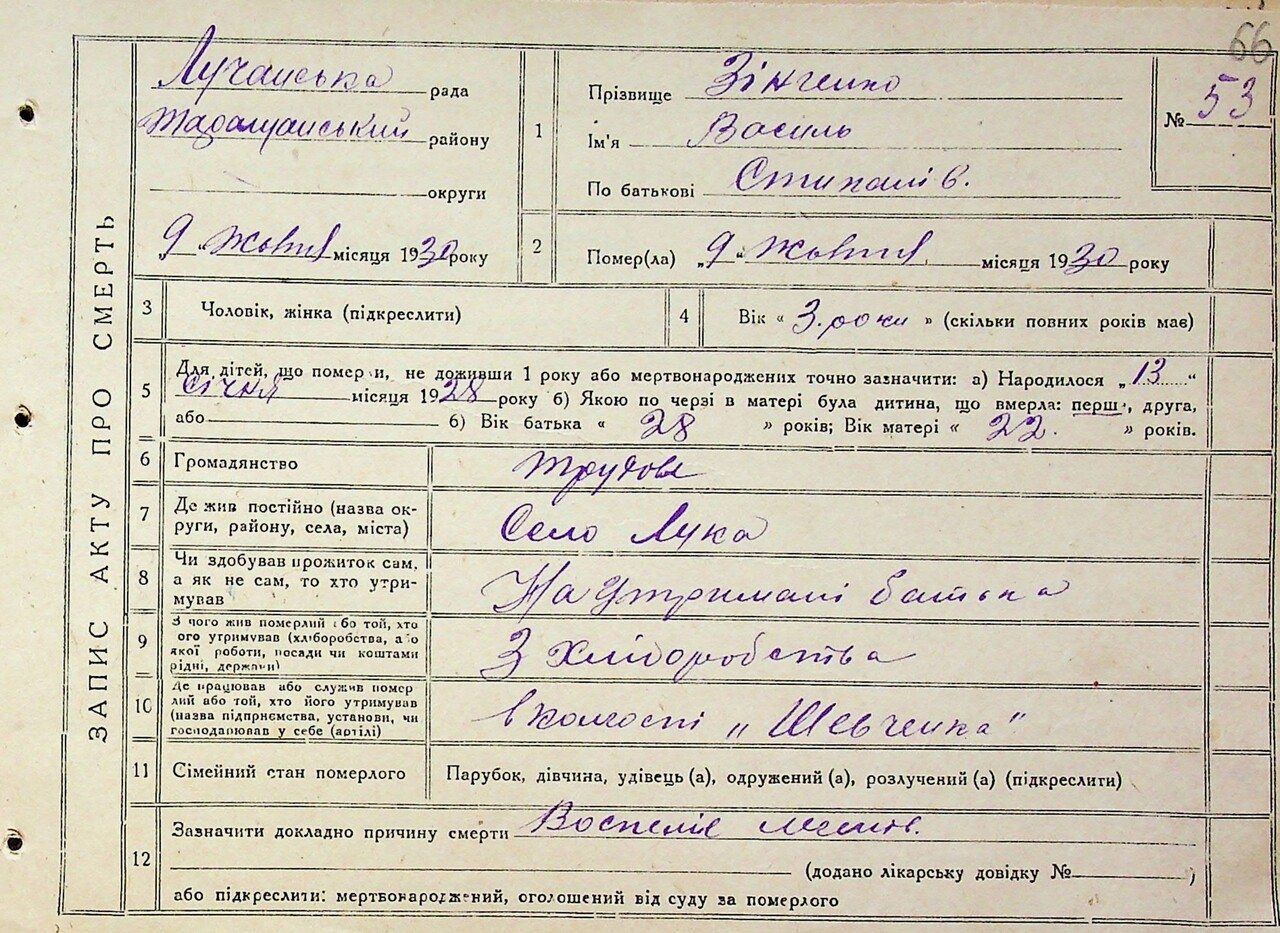 66
ЗАПИС АКТУ ПРО СМЕРТЬ
Лучанська рада
Таращанський району
округи
9 „ жовтня місяця 1930 року
1
Прізвище Зінченко
Ім'я Василь
По батькові Степанів.
№ 53
2
Помер(ла) „9„ жовтня місяця 1930 року
3 Чоловік, жінка (підкреслити)
4 Вік « 3. роки » (скільки повних років має)
5
Для дітей, що померли, не доживши 1 року або мертвонароджених точно зазначити: а) Народилося „ 13 “
Січня місяця 1928 року б) Якою по черзі в матері була дитина, що вмерла: перш, друга,
або 6) Вік батька « 28 » років; Вік матері « 22. » років.
6 Громадянство
Трудове
7 Де жив постійно (назва ок-
руги, району, села, міста)
Село Лука
8 Чи здобував прожиток сам,
а як не сам, то хто утри-
мував
На утримані батька
9 З чого жив померлий або той, хто
його утримував (хліборобства, або
якої роботи, посади чи коштами
рідні, держави)
З хліборобства
10 Де працював або служив помер
лий або той, хто його утримував
(назва підприємства, установи, чи
господарював у себе (артілі)
в колгоспі „Шевченка“
11 Сімейний стан померлого
Парубок, дівчина, удівець (а), одружений (а), розлучений (а) (підкреслити)
12
Зазначити докладно причину смерти
(додано лікарську довідку № )
або підкреслити: мертвонароджений, оголошений від суду за померлого